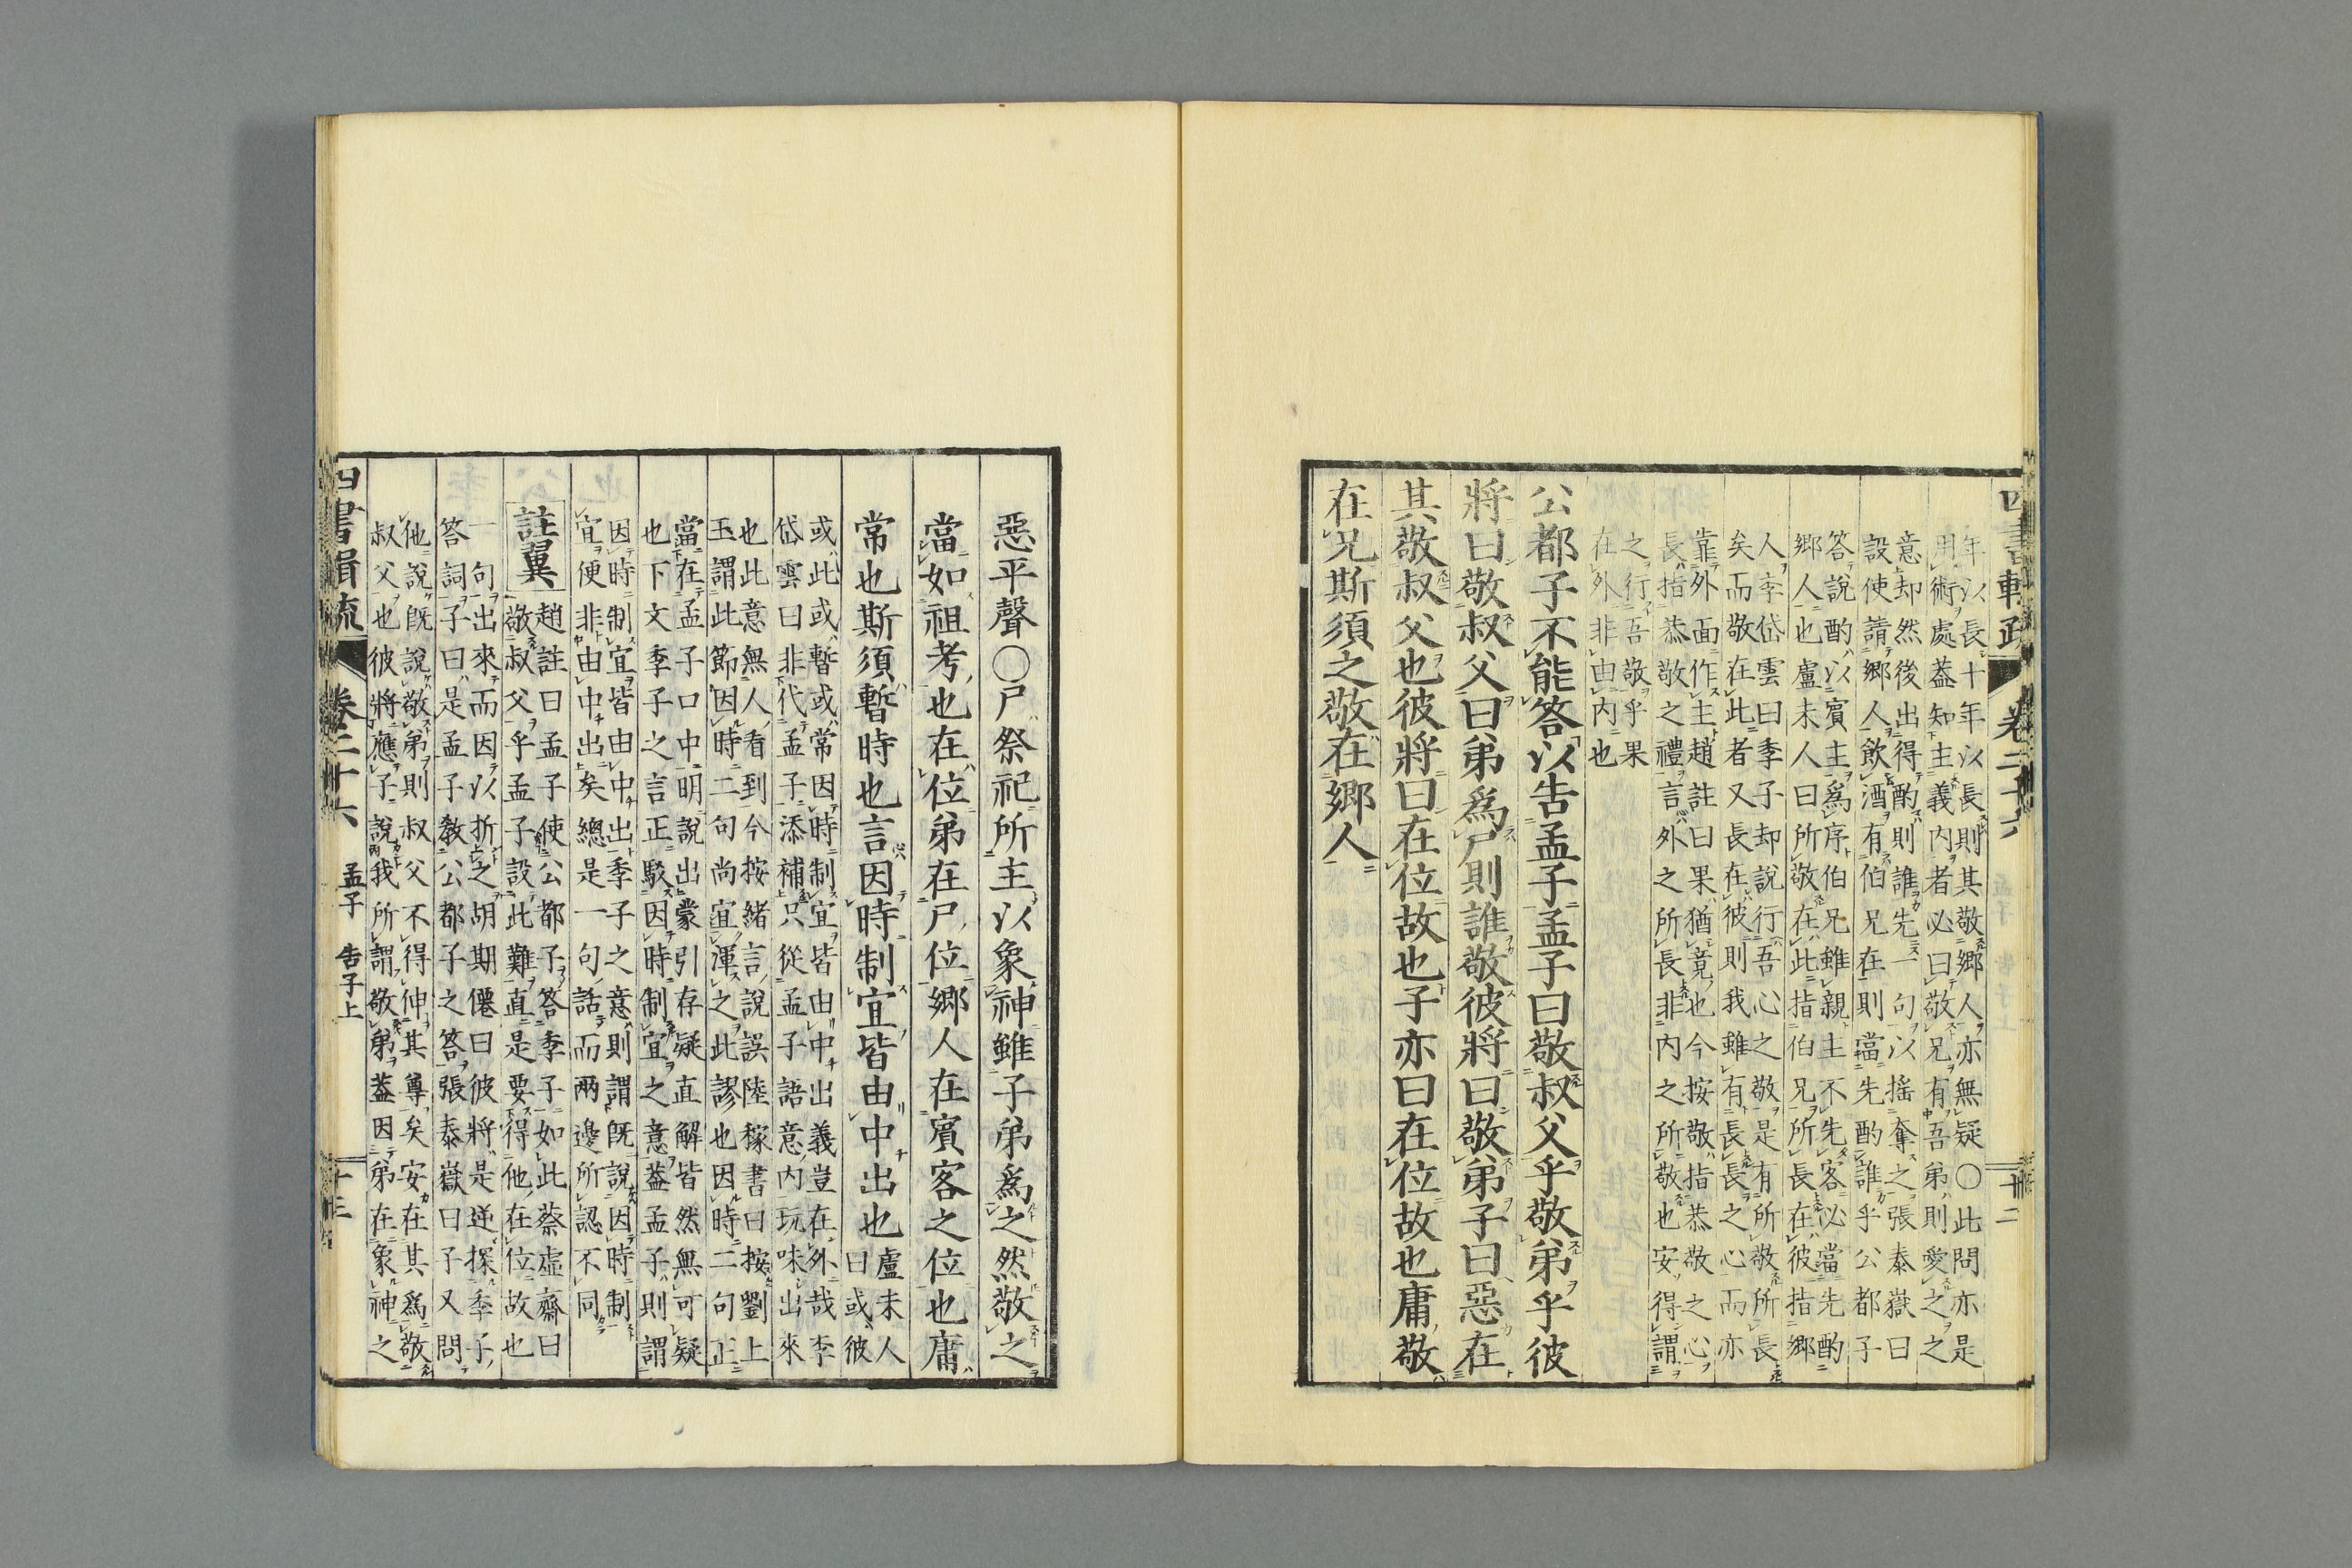 年以長十年以長則其敬郷人亦無疑〇此問亦是
用術處蓋知主義内者必曰敬兄有吾弟則愛之之
意却然後出得酌則誰先一句以搖奪之張泰嶽曰
設使請郷人飲酒有伯兄在則當先酌誰乎公都子
答説酌以賓主爲序伯兄雖親主不先客必當先酌
郷人也盧未人曰所敬在此指伯兄所長在彼指郷
人李岱雲曰季子却説行吾心之敬是有所敬所長
矣而敬在此者又長在彼則我雖有長長之心而亦
靠外面作主趙註曰果猶竟也今按敬指恭敬之心
長指恭敬之禮言外之所長非内之所敬也安得謂
之行吾敬乎果
在外非由内也
公都子不能答以告孟子孟子曰敬叔父乎敬弟乎彼
將曰敬叔父曰弟爲尸則誰敬彼將曰敬弟子曰惡在
其敬叔父也彼將曰在位故也子亦曰在位故也庸敬
在兄斯須之敬在郷人
惡平聲〇尸祭祀所主以象神雖子弟爲之然敬之
當如祖考也在位弟在尸位郷人在賓客之位也庸
常也斯須暫時也言因時制宜皆由中出也
盧未人
曰或彼
或此或暫或常因時制宜皆由中出義豈在外哉李
岱雲曰非代孟子添補只從孟子語意内玩味出來
也此意無人看到今按緒言説誤陸稼書曰按劉上
玉謂此節因時二句尚宜渾之此謬也因時二句正
當在孟子口中明説出蒙引存疑直解皆然無可疑
也下文季子之言正駁因時制宜之意蓋孟子則謂
因時制宜皆由中出季子之意則謂既説因時制
宜便非由中出矣總是一句話而兩邊所認不同
註翼
趙註曰孟子使公都子答季子如此蔡虛齋曰
敬叔父乎孟子設此難直是要得他在位故也
一句出來而因以折之胡期僊曰彼將是逆探季子
答詞子曰是孟子教公都子之答張泰嶽曰子又問
他説既説敬弟則叔父不得伸其尊矣安在其爲敬
叔父也彼將應子説我所謂敬弟蓋因弟在象神之
四書輯疏
卷二十六
孟子
告子上
十三